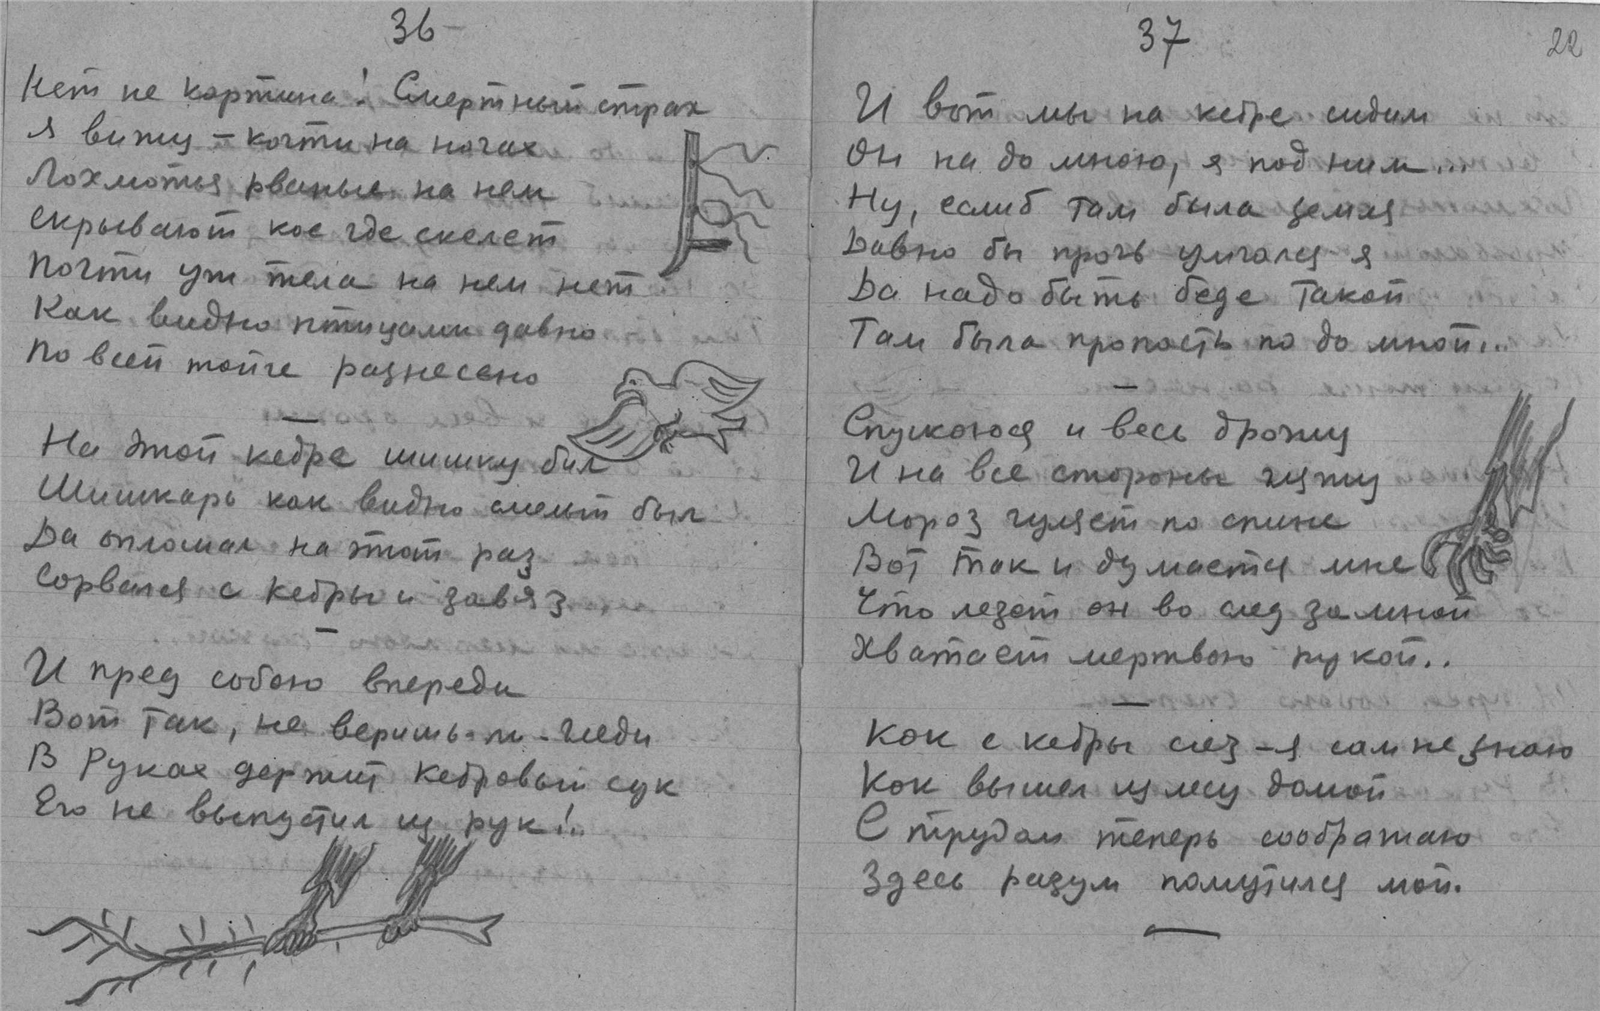 36
Нет не картина! Смертный страх
Я вижу – когти на ногах
Лохмотья рваные на нем
Скрывают кое где скелет
Почти уж тела на нем нет
Как видно птицами давно
По всей тайге разнесено
—
На этой кедре шишку бил
Шишкарь как видно смелый был
Да оплошал на этот раз
Сорвался с кедры и завяз
—
И пред собою впереди
Вот так, не веришь-ли-гледи
В руках держит кедровый сук
Его не выпустил из рук!..
37
22
И вот мы на кедре сидим
Он на до мною, я под ним...
Ну, еслиб там была земля
Давно бы прочь умчался я
Да надо быть беде такой
Там была пропасть по до мной...
—
Спускаюся и весь дрожу
И на все стороны гляжу
Мороз гуляет по спине
Вот так и думается мне
Что лезет он во след за мной
Хватает мертвою рукой..
—
Как с кедры слез – я сам не знаю
Как вышел из лесу домой
С трудом теперь соображаю
Здесь разум помутился мой.
—